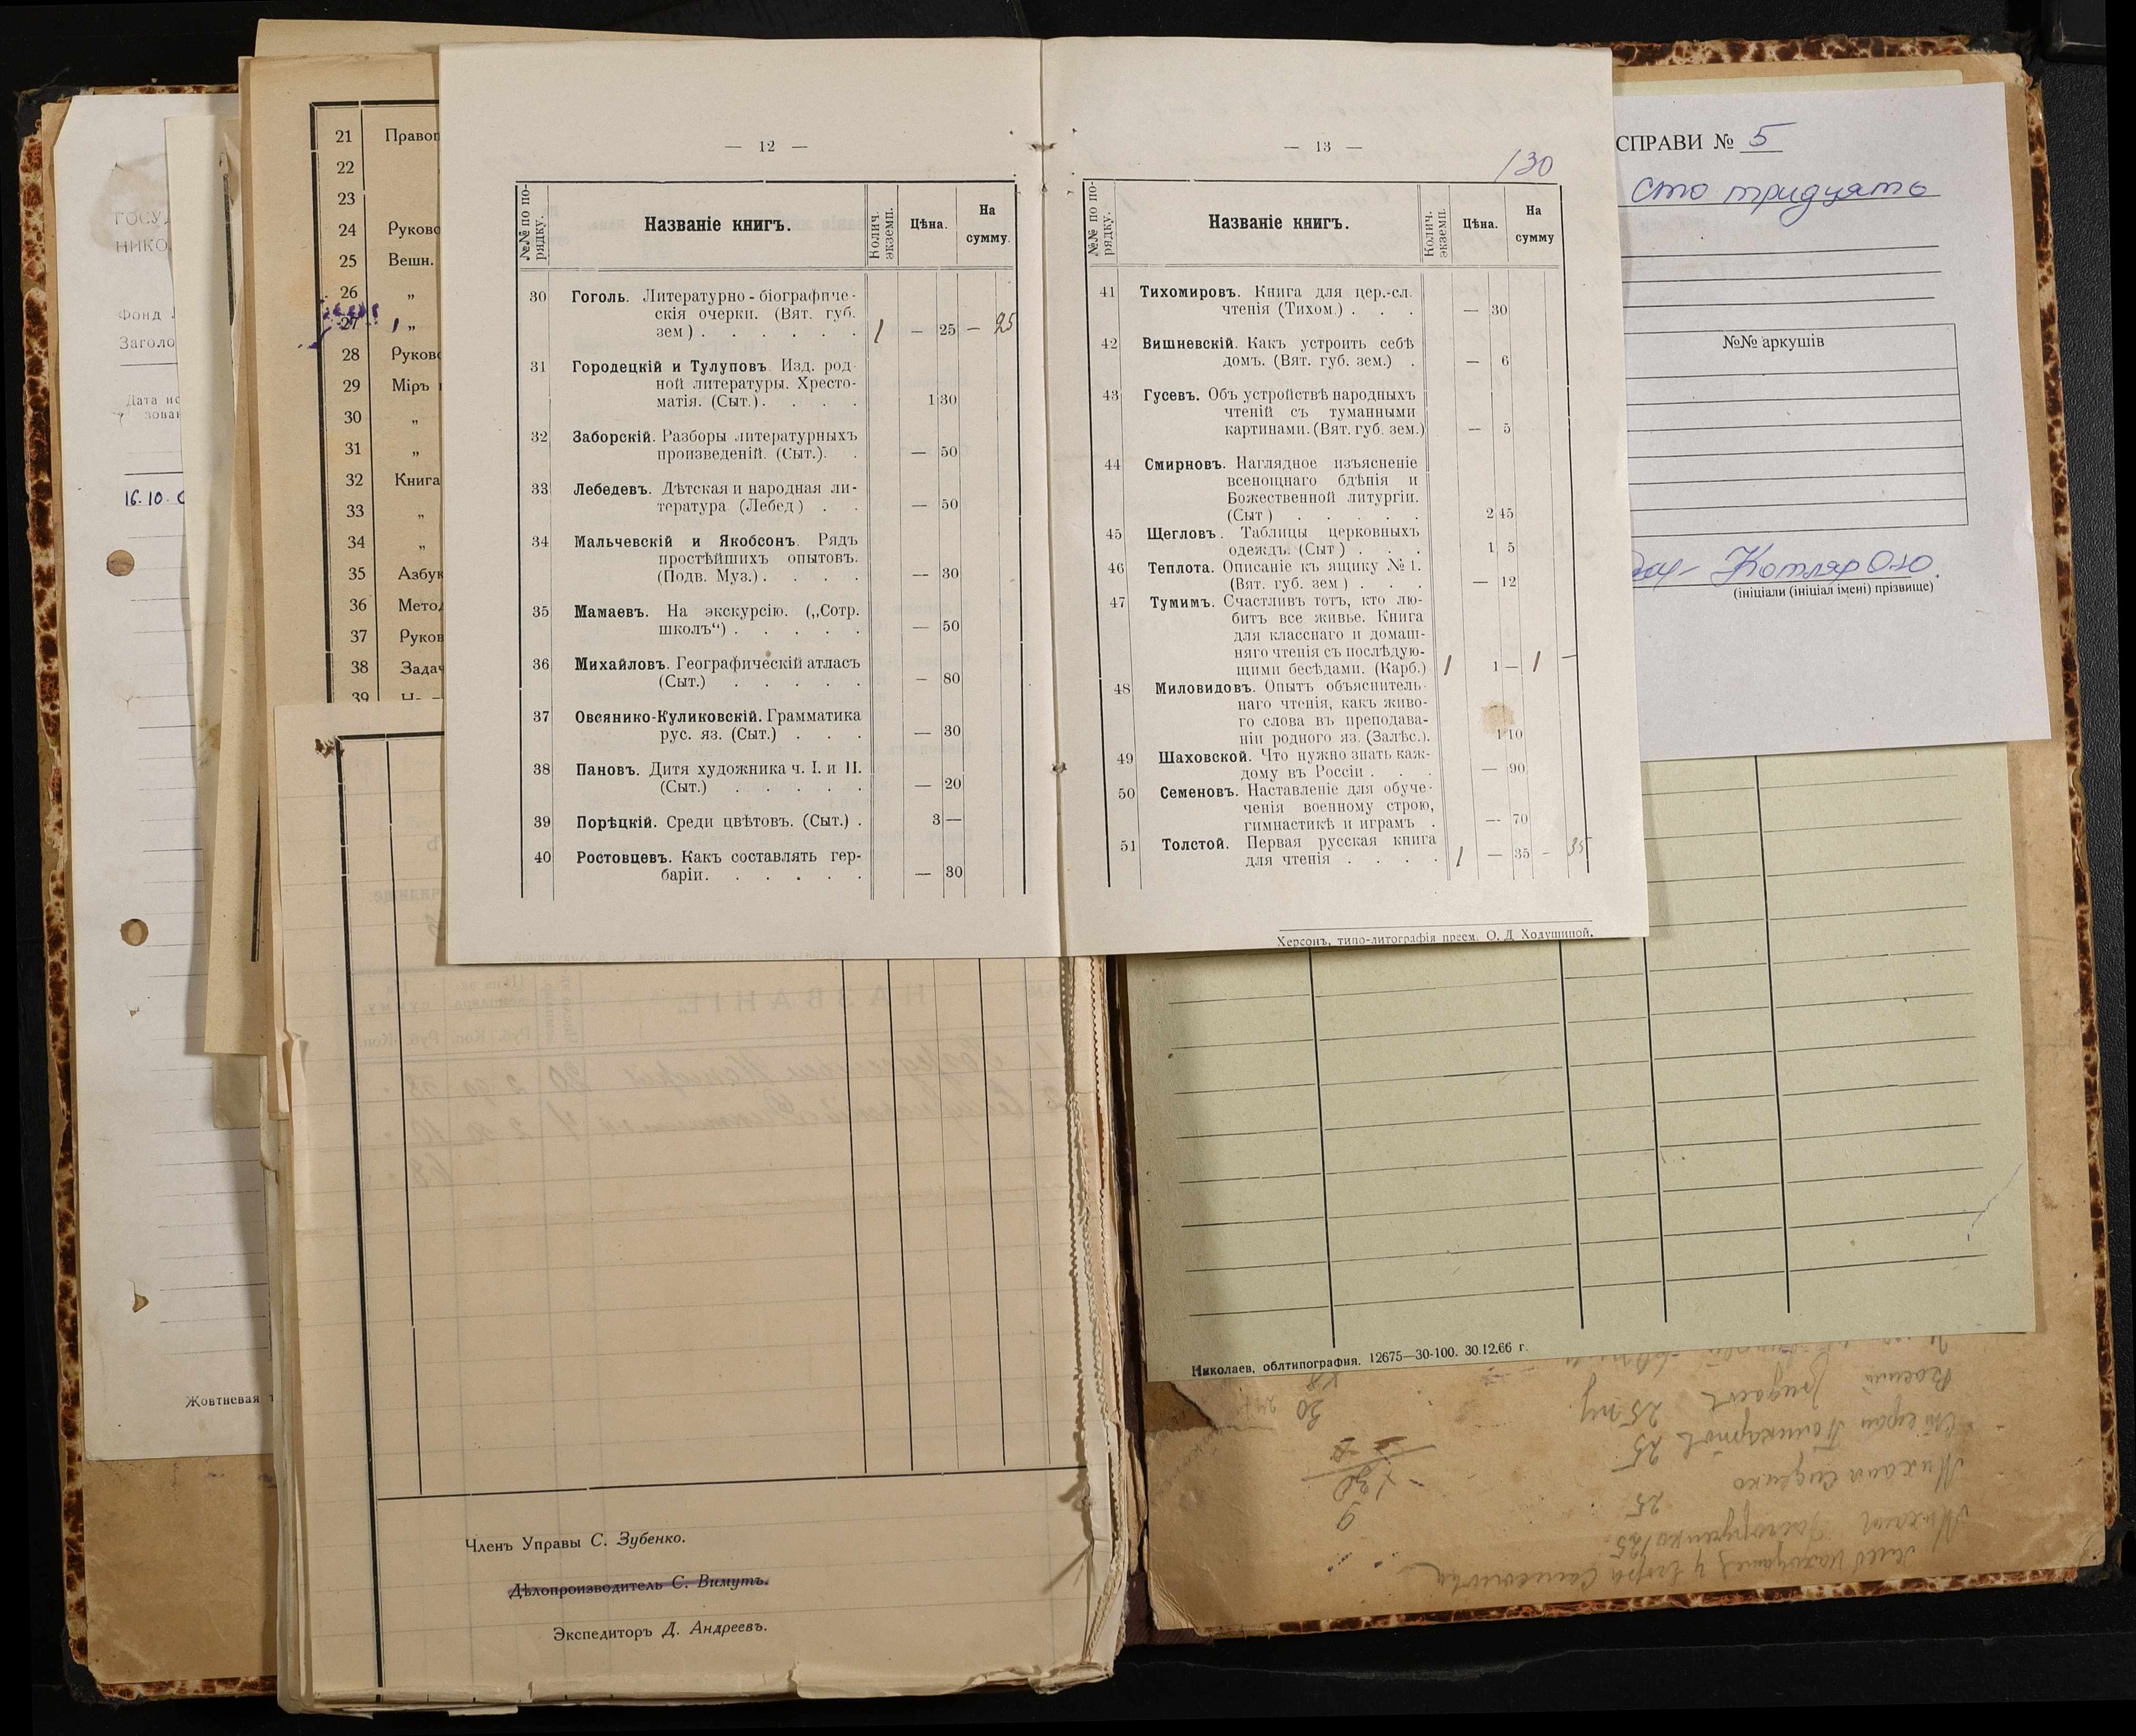 — 12 —
№№ по по-
рядку.
Названіе книгъ.
Колич.
экземп.
Цѣна.
На
сумму.
30 Гоголь. Литературно-біографиче-
скія очерки. (Вят. губ.
зем) . . . . . . 1 — 25 — 25
31 Городецкій и Тулуповъ Изд. род-
ной литературы. Хресто-
матія. (Сыт.). . . . 1 30
32 Заборскій. Разборы литературныхъ
произведеній. (Сыт.). . — 50
33 Лебедевъ. Дѣтская и народная ли-
тература (Лебед) . . — 50
34 Мальчевскій и Якобсонъ. Рядъ
простѣйшихъ опытовъ.
(Подв. Муз.). . . . . — 30
35 Мамаевъ. На экскурсію. („Сотр.
школъ“) . . . . . — 50
36 Михайловъ. Географическій атласъ
(Сыт.) . . . . . — 80
37 Овсянико-Куликовскій. Грамматика
рус. яз. (Сыт.) . . . — 30
38 Пановъ. Дитя художника ч. I. и II.
(Сыт.) . . . . . — 20
39 Порѣцкій. Среди цвѣтовъ. (Сыт.) . 3 —
40 Ростовцевъ. Какъ составлять гер-
баріи. . . . . . — 30
— 13 —
130
№№ по по-
рядку.
Названіе книгъ.
Колич.
экземп.
Цѣна.
На
сумму
41 Тихомировъ. Книга для цер.-сл.
чтенія (Тихом.) . . . — 30
42 Вишневскій. Какъ устроить себѣ
домъ. (Вят. губ. зем.) . — 6
43 Гусевъ. Объ устройствѣ народныхъ
чтеній съ туманными
картинами. (Вят. губ. зем.) — 5
44 Смирновъ. Наглядное изъясненіе
всенощнаго бдѣнія и
Божественной литургіи.
(Сыт) . . . . . 2 45
45 Щегловъ. Таблицы церковныхъ
одеждъ. (Сыт) . . . 1 5
46 Теплота. Описаніе къ ящику № 1.
(Вят. губ. зем) . . . — 12
47 Тумимъ. Счастливъ тотъ, кто лю-
битъ все живье. Книга
для класснаго и домаш-
няго чтенія съ послѣдую-
щими бесѣдами. (Карб.) 1 1 — 1 —
48 Миловидовъ. Опытъ объяснитель-
наго чтенія, какъ живо-
го слова въ преподава-
ніи родного яз. (Залѣс.). 1 10
49 Шаховской. Что нужно знать каж-
дому въ Россіи . . . — 90
50 Семеновъ. Наставленіе для обуче-
ченія военному строю,
гимнастикѣ и играмъ . — 70
51 Толстой. Первая русская книга
для чтенія . . . . 1 — 35 — 35
Херсонъ, типо-литографія преем. О. Д. Ходушиной.
21 Правоп
22
23
24 Руково
25 Вешн.
26 „
27 „
28 Руково
29 Міръ
30 „
31 „
32 Книга
33 „
34 „
35 Азбук
36 Метод
37 Руков
38 Задач
39
ГОСУД
НИКО
Фонд
Заголо
Дата ис
зован
16.10.0
Жовтневая т
Членъ Управы С. Зубенко.
Дѣлопроизводитель С. Вимутъ.
Экспедиторъ Д. Андреевъ.
СПРАВИ № 5
сто тридцять
№№ аркушів
Котляр О.Ю.
(ініціали (ініціал імені) прізвище)
Николаев, облтипография. 12675—30-100. 30.12.66 г.